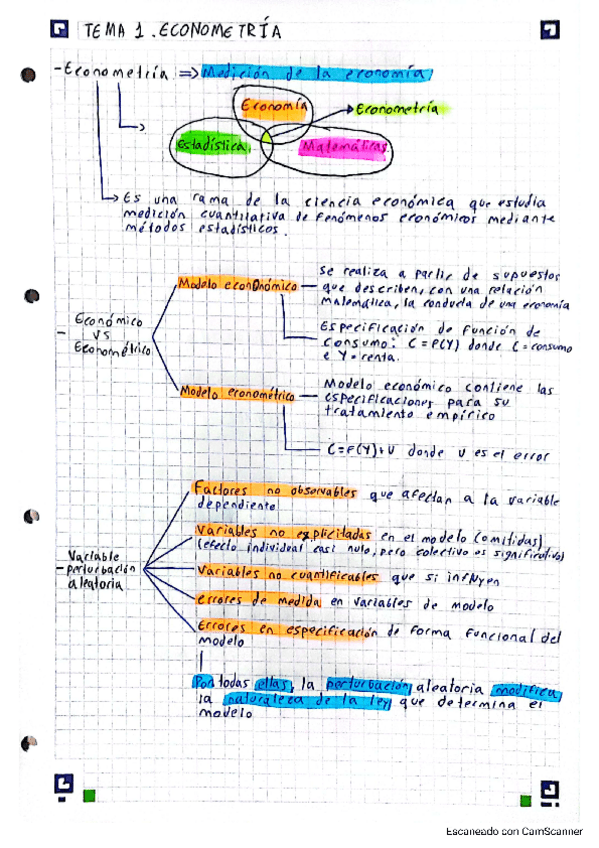 TEMA 1. ECONOMETRÍA
- Econometría => Medición de la economía
Economía
Econometría
Estadística
Matemáticas
Es una rama de la ciencia económica que estudia
medición cuantitativa de fenómenos económicos mediante
métodos estadísticos.
- Económico
vs
Econométrico
Modelo económico
Se realiza a partir de supuestos
que describen, con una relación
matemática, la conducta de una economía
Especificación de función de
consumo: C=F(Y) donde C=consumo
e Y=renta.
Modelo econométrico
Modelo económico contiene las
especificaciones para su
tratamiento empírico
C=F(Y)+U donde U es el error
- Variable
perturbación
aleatoria
Factores no observables que afectan a la variable
dependiente
Variables no explicitadas en el modelo (omitidas)
(efecto individual casi nulo, pero colectivo es significativo)
Variables no cuantificables que si influyen
errores de medida en variables de modelo
Errores en especificación de forma funcional del
modelo
Por todas ellas, la perturbación aleatoria modifica
la naturaleza de la ley que determina el
modelo
Escaneado con CamScanner